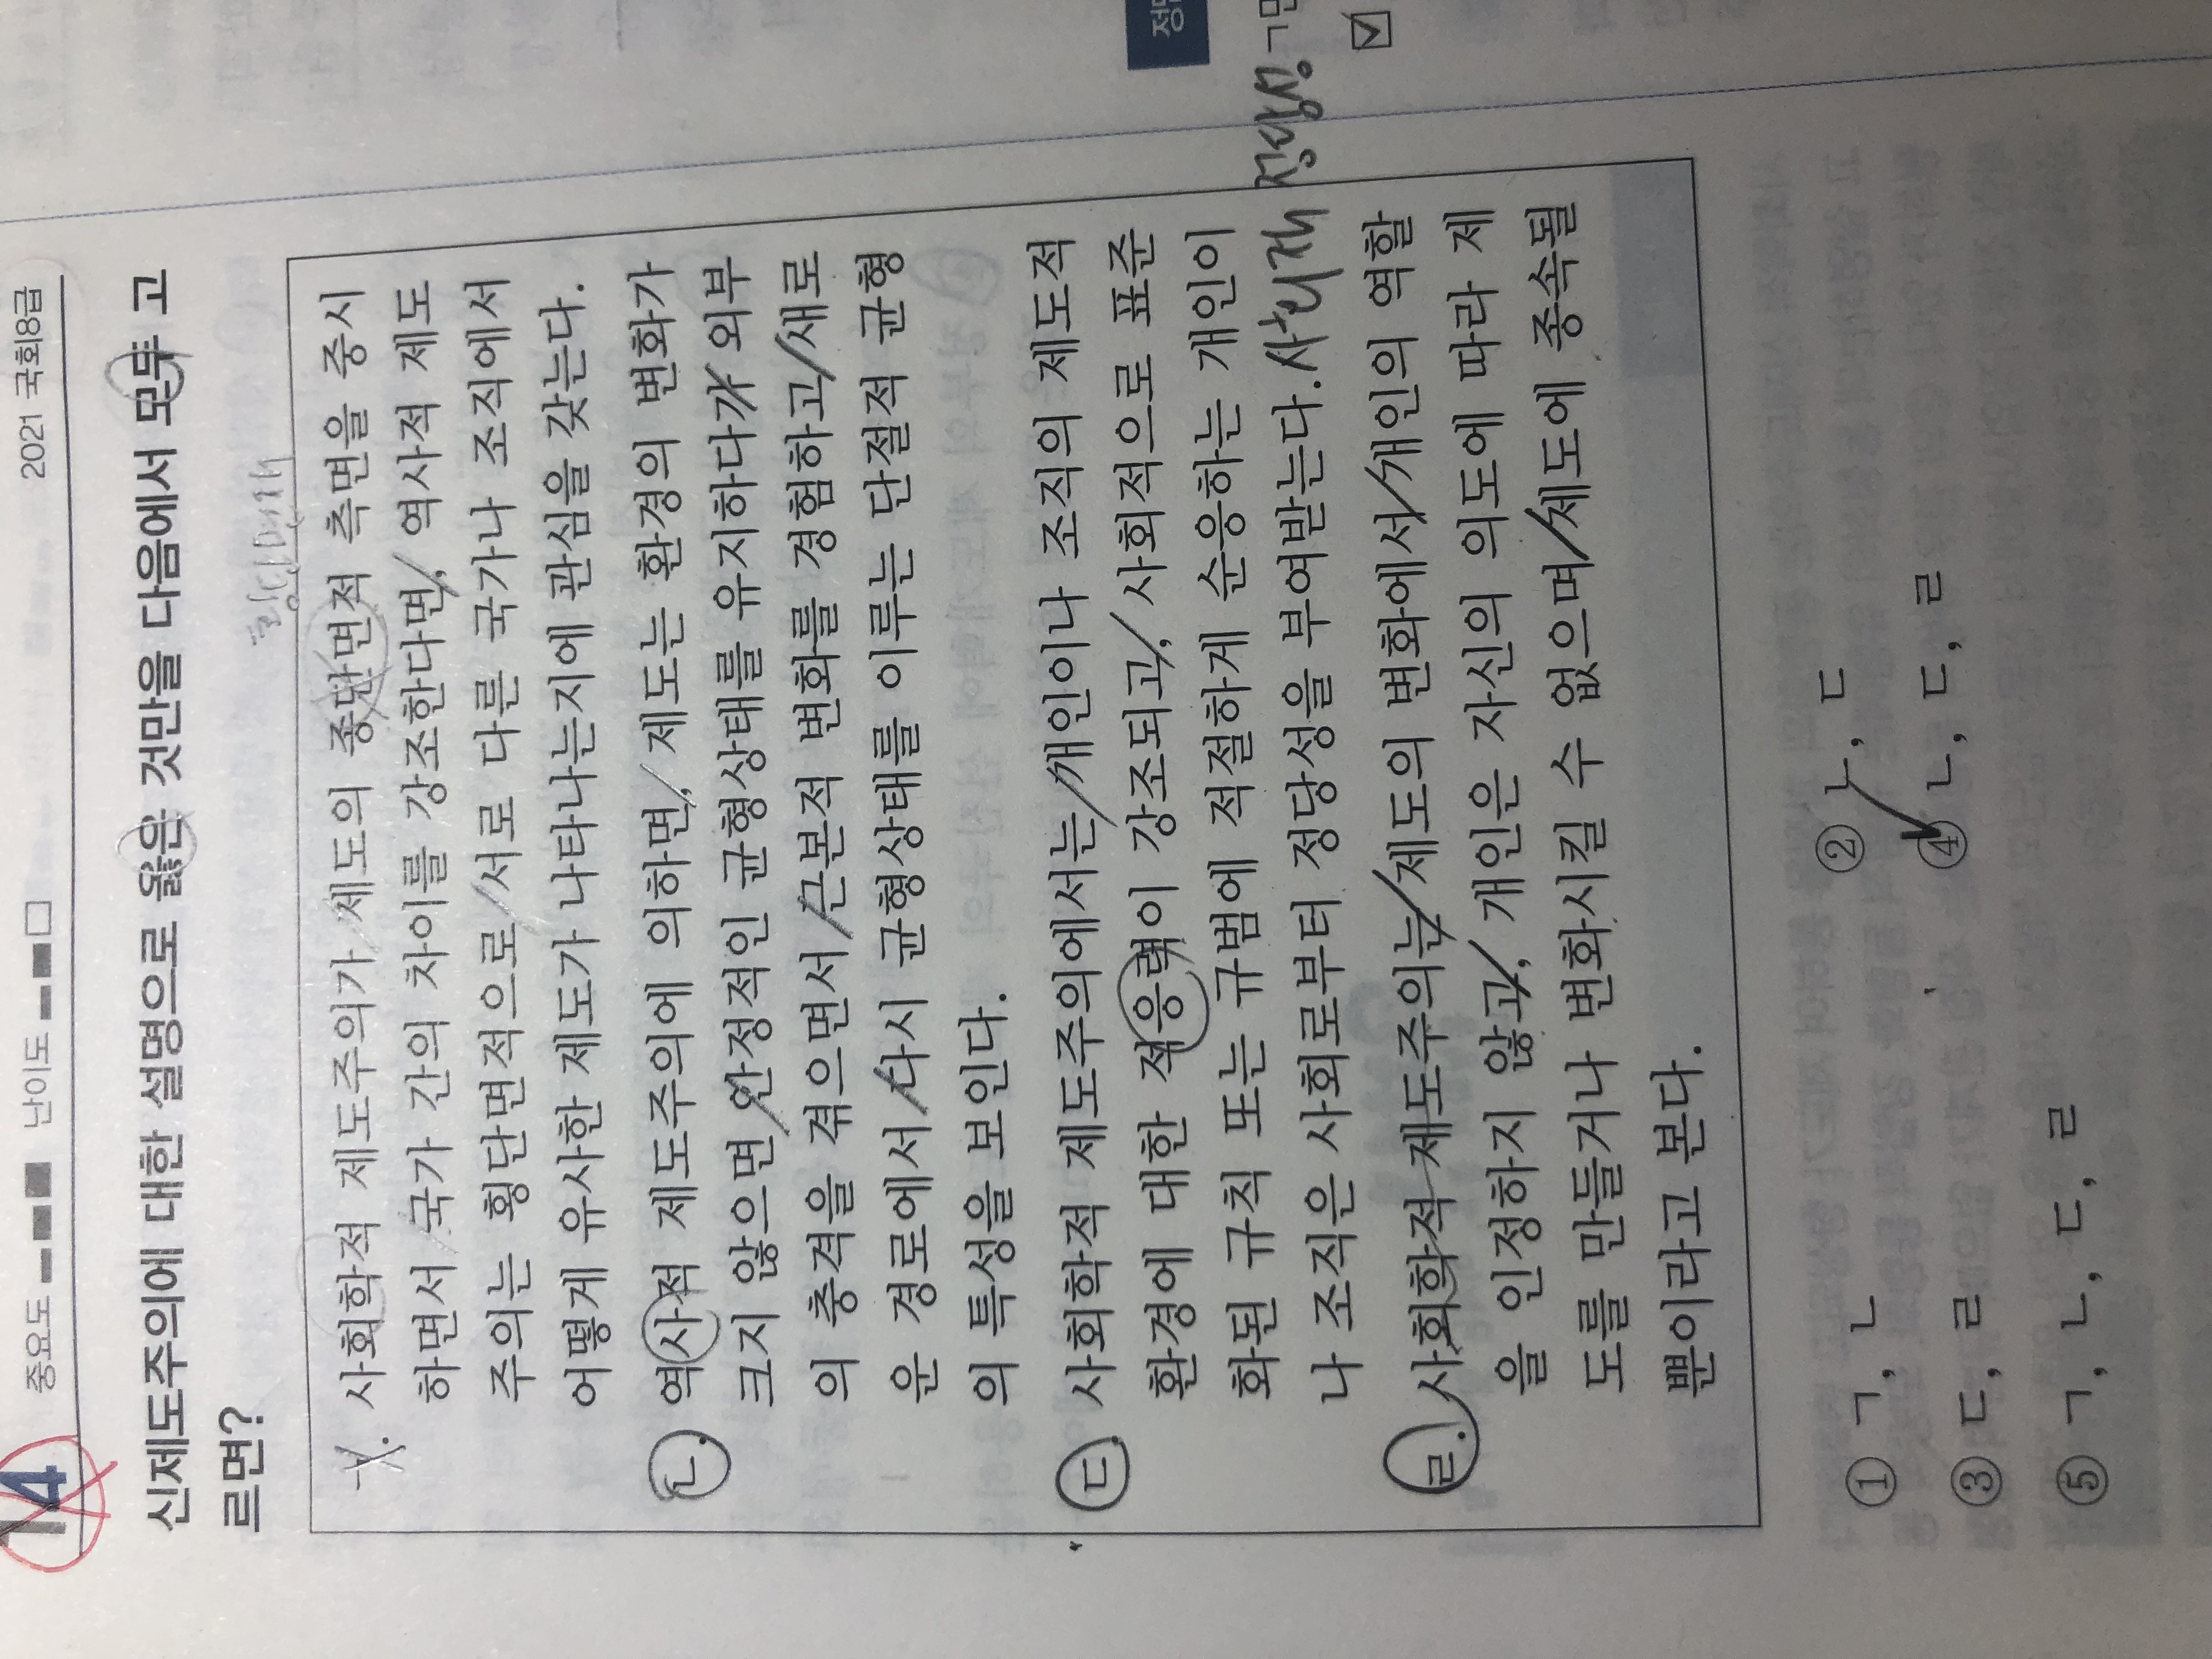 중요도 난이도 2021 국회8급
14
신제도주의에 대한 설명으로 옳은 것만을 다음에서 모두 고
르면?
횡단면적
ㄱ. 사회학적 제도주의가 제도의 종단면적 측면을 중시
하면서 국가 간의 차이를 강조한다면, 역사적 제도
주의는 횡단면적으로 서로 다른 국가나 조직에서
어떻게 유사한 제도가 나타나는지에 관심을 갖는다.
ㄴ. 역사적 제도주의에 의하면, 제도는 환경의 변화가
크지 않으면 안정적인 균형상태를 유지하다가 외부
의 충격을 겪으면서 근본적 변화를 경험하고 새로
운 경로에서 다시 균형상태를 이루는 단절적 균형
의 특성을 보인다.
ㄷ. 사회학적 제도주의에서는 개인이나 조직의 제도적
환경에 대한 적응력이 강조되고, 사회적으로 표준
화된 규칙 또는 규범에 적절하게 순응하는 개인이
나 조직은 사회로부터 정당성을 부여받는다. 사회적 정당성
ㄹ. 사회학적 제도주의는 제도의 변화에서 개인의 역할
을 인정하지 않고, 개인은 자신의 의도에 따라 제
도를 만들거나 변화시킬 수 없으며 제도에 종속될
뿐이라고 본다.
① ㄱ, ㄴ ② ㄴ, ㄷ
③ ㄷ, ㄹ ④ ㄴ, ㄷ, ㄹ
⑤ ㄱ, ㄴ, ㄷ, ㄹ